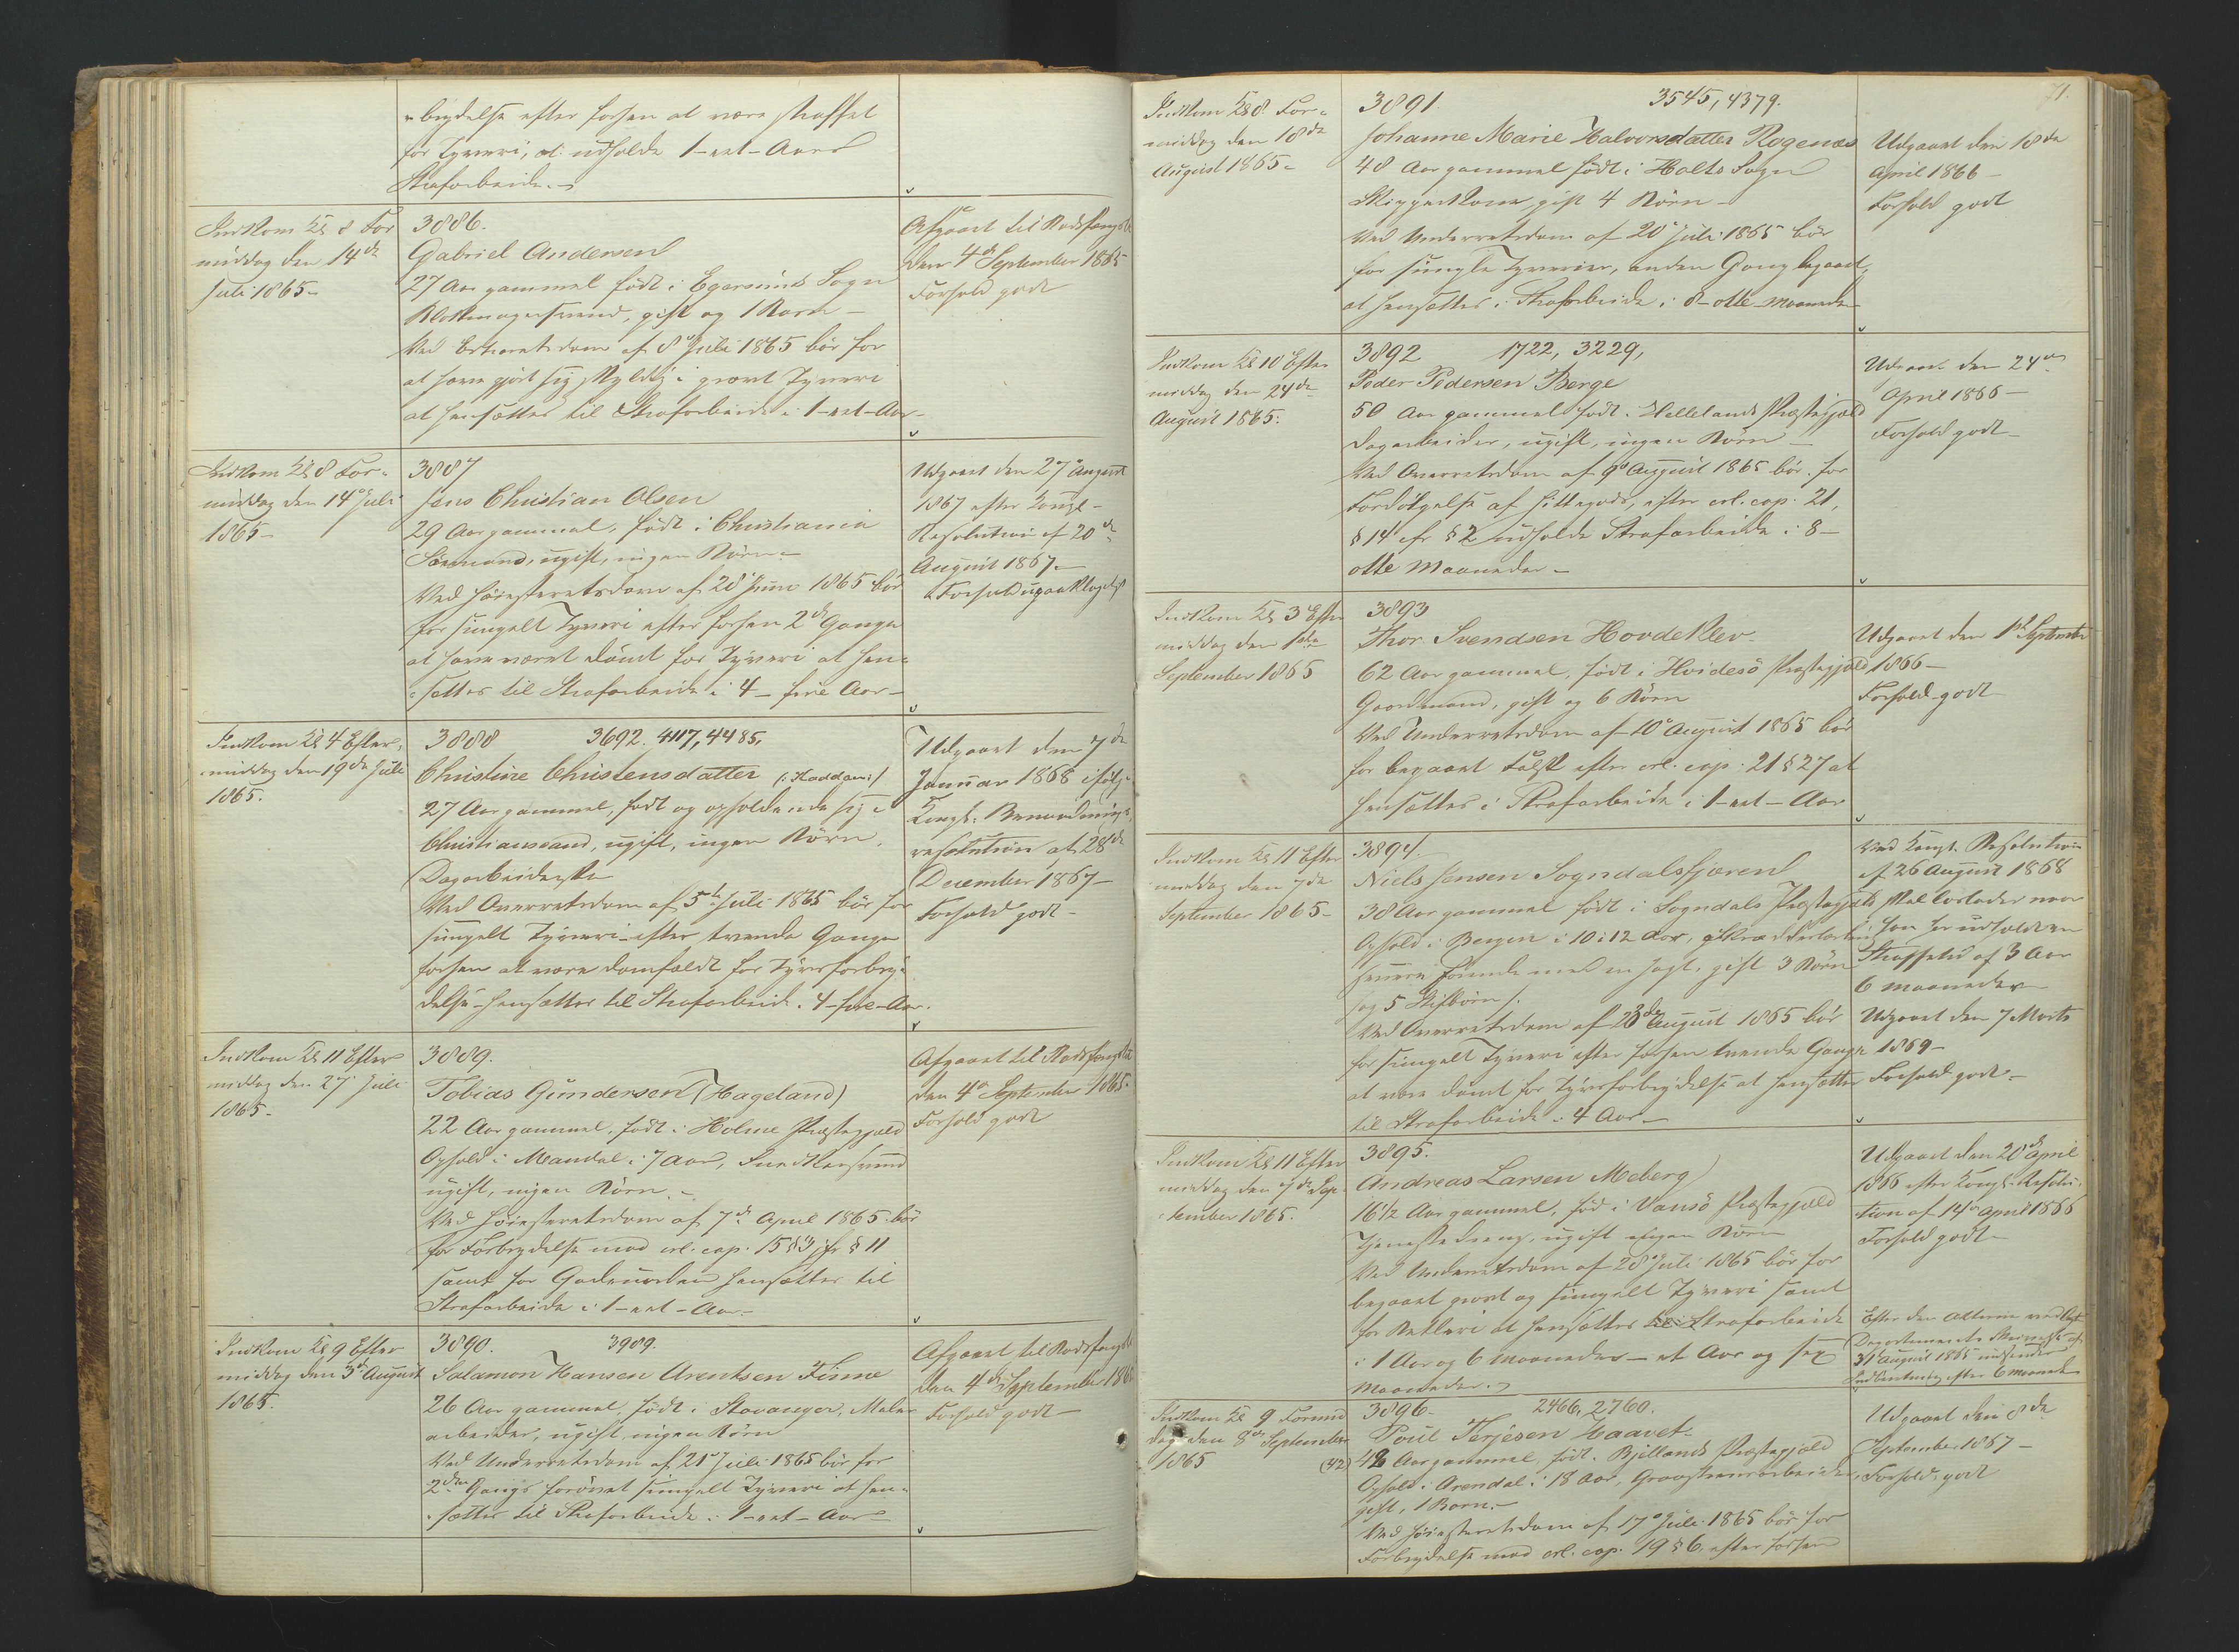 brydelse efter forhen at være straffet
for Tyveri, at udholde 1 - eet - Aars
Strafarbeide.
Indkom Kl 8 For
middag den 14de
Juli 1865 -
3886.
Gabriel Andersen
27 Aar gammel født i Egersunds Sogn
Blokmagersvend, gift og 1 Barn -
Ved Extraretsdom af 8de Juli 1865 bør for
at have gjort sig skyldig i grovt Tyveri
at hensættes til Strafarbeide i 1 - eet - Aar -
Afgaaet til Bodsfængslet
den 4de September 1865
Forhold godt
Indkom Kl 8 For-
middag den 14de Juli
1865 -
3887
Jens Christian Olsen
29 Aar gammel, født i Christiania
Sømand, ugift, ingen Børn -
Ved Høiesteretsdom af 28 Juni 1865 bør
for simpelt Tyveri efter forhen 2de Gange
at have været dømt for Tyveri at hen-
sættes til Strafarbeide i 4 - fire Aar -
Udgaaet den 27 August
1867 efter Kongl -
Resolution af 20de
August 1867 -
Forhold upaaklageligt
Indkom Kl 4 Efter-
middag den 19de Juli
1865.
3888 3692. 4117, 4485.
Christine Christensdatter (: Kodden :)
27 Aar gammel, født og opholdende sig i
Christianssand, ugift, ingen Børn.
Dagarbeiderske
Ved Overretsdom af 5te Juli 1865 bør for
simpelt Tyveri - efter tvende Gange
forhen at være domfældt for Tyvsforbry-
delse - hensættes til Strafarbeide i 4 - fire - Aar.
Udgaaet den 7de
Januar 1868 ifølge
Kongl: Benaadnings
resolution af 28de
December 1867 -
Forhold godt -
Indkom Kl 11 Efter
middag den 27 Juli
1865 -
3889.
Tobias Gundersen (Hageland)
22 Aar gammel, født i Holme Præstegjæld
Ophold i Mandal i 7 Aar, Snedkersvend
ugift, ingen Børn. -
Ved Høiesteretsdom af 7de April 1865 bør
for Forbrydelse mod crl. cap. 15 § 3 jfr § 11
samt for Gadeuorden hensættes til
Strafarbeide i 1 - eet - Aar -
Afgaaet til Bodsfængslet
den 4de September 1865 -
Forhold godt
Indkom Kl 9 Efter
middag den 3de August
1865.
3890. 3989.
Salamon Hansen Arentsen Finne
26 Aar gammel, født i Stavanger, Maler
arbeider, ugift ingen Børn
Ved Underretsdom af 21de Juli 1865 bør for
2den Gangs forøvet simpelt Tyveri at hen-
sættes til Strafarbeide i 1 - eet - Aar -
Afgaaet til Bodsfængslet
den 4de September 1865
Forhold godt -
71.
Indkom Kl 8 For-
middag den 18de
August 1865 -
3891. 3545, 4379.
Johanne Marie Halvorsdatter Rogenæs
48 Aar gammel født i Holts Sogn
Skipperkone gift 4 Børn -
Ved Underretsdom af 20 Juli 1865 bør
for simple Tyverier, anden Gang begaaet,
at hensættes i Strafarbeide i 8 - otte Maaneder
Udgaaet den 18de
April 1866 -
Forhold godt
Indkom Kl 10 Efter
middag den 24de
August 1865.
3892 1722, 3229,
Peder Pedersen Berge
50 Aar gammel født i Hellelands Præstegjæld
Dagarbeider, ugift, ingen Børn -
Ved Overretsdom af 9de August 1865 bør for
Fordølgelse af Hittegods, efter crl. cap. 21,
§ 14 cfr § 2 udholde Strafarbeide i 8 -
otte Maaneder -
Udgaaet den 24de
April 1866 -
Forhold godt -
Indkom Kl 3 Efter
middag den 1ste
September 1865
3893
Thor Svendsen Hovdeklev
62 Aar gammel, født i Hvidesø Præstegjæld
Gaardmand, gift og 6 Børn
Ved Underretsdom af 10de August 1865 bør
for begaaet Falsk efter crl. cap. 21 § 27 at
hensættes i Strafarbeide i 1 - eet - Aar
Udgaaet den 1ste September
1866 -
Forhold godt
Indkom Kl 11 Efter
middag den 7de
September 1865 -
3894.
Niels Jensen Sogndalsfjæren
38 Aar gammel født i Sogndals Præstegjæld
Ophold i Bergen i 10 i 12 Aar,
senere farende med en Jagt, gift 3 Børn
og 5 Stifbørn /.
Ved Overretsdom af 23de August 1865 bør
for simpelt Tyveri efter forhen tvende Gange
at være dømt for Tyvsforbrydelse at hensættes
til Strafarbeide i 4 Aar -
Ved Kongl. Resolution
af 26 August 1868
skal løslades naar
han har udholdt en
Straffetid af 3 Aar
6 Maaneder
Udgaaet den 7 Marts
1869 -
Forhold godt -
Indkom Kl 11 Efter
middag den 7de Sep-
tember 1865.
3895.
Andreas Larsen Meberg
16 1/2 Aar gammel, fød i Vansø Præstegjæld
Tjenestedreng, ugift ingen Børn
Ved Underretsdom af 28 Juli 1865 bør for
begaaet grovt og simpelt Tyveri samt
for Betleri at hensættes til Strafarbeide
i 1 Aar og 6 Maaneder - et Aar og sex
Maaneder.
Udgaaet den 20de April
1866 efter Kongl: Resolu-
tion af 14de April 1866
Forhold godt -
Efter den Allerunderd
Departementets Skrivelse af
31 August 1865
efter 6 Maaneder
Indkom Kl 9 Formid
dag den 8de September
1865
3896 - 2466, 2760.
Poul Terjesen Haavet -
(42) 48 Aar gammel, født i Bjellands Præstegjæld
Ophold i Arendal i 18 Aar, Graastensarbeider,
gift, 1 Barn. -
Ved Høiesteretsdom af 17de Juli 1865 bør for
Forbrydelse mod crl. cap. 19 § 6 efter forhen
Udgaaet den 8de
September 1867 -
Forhold godt